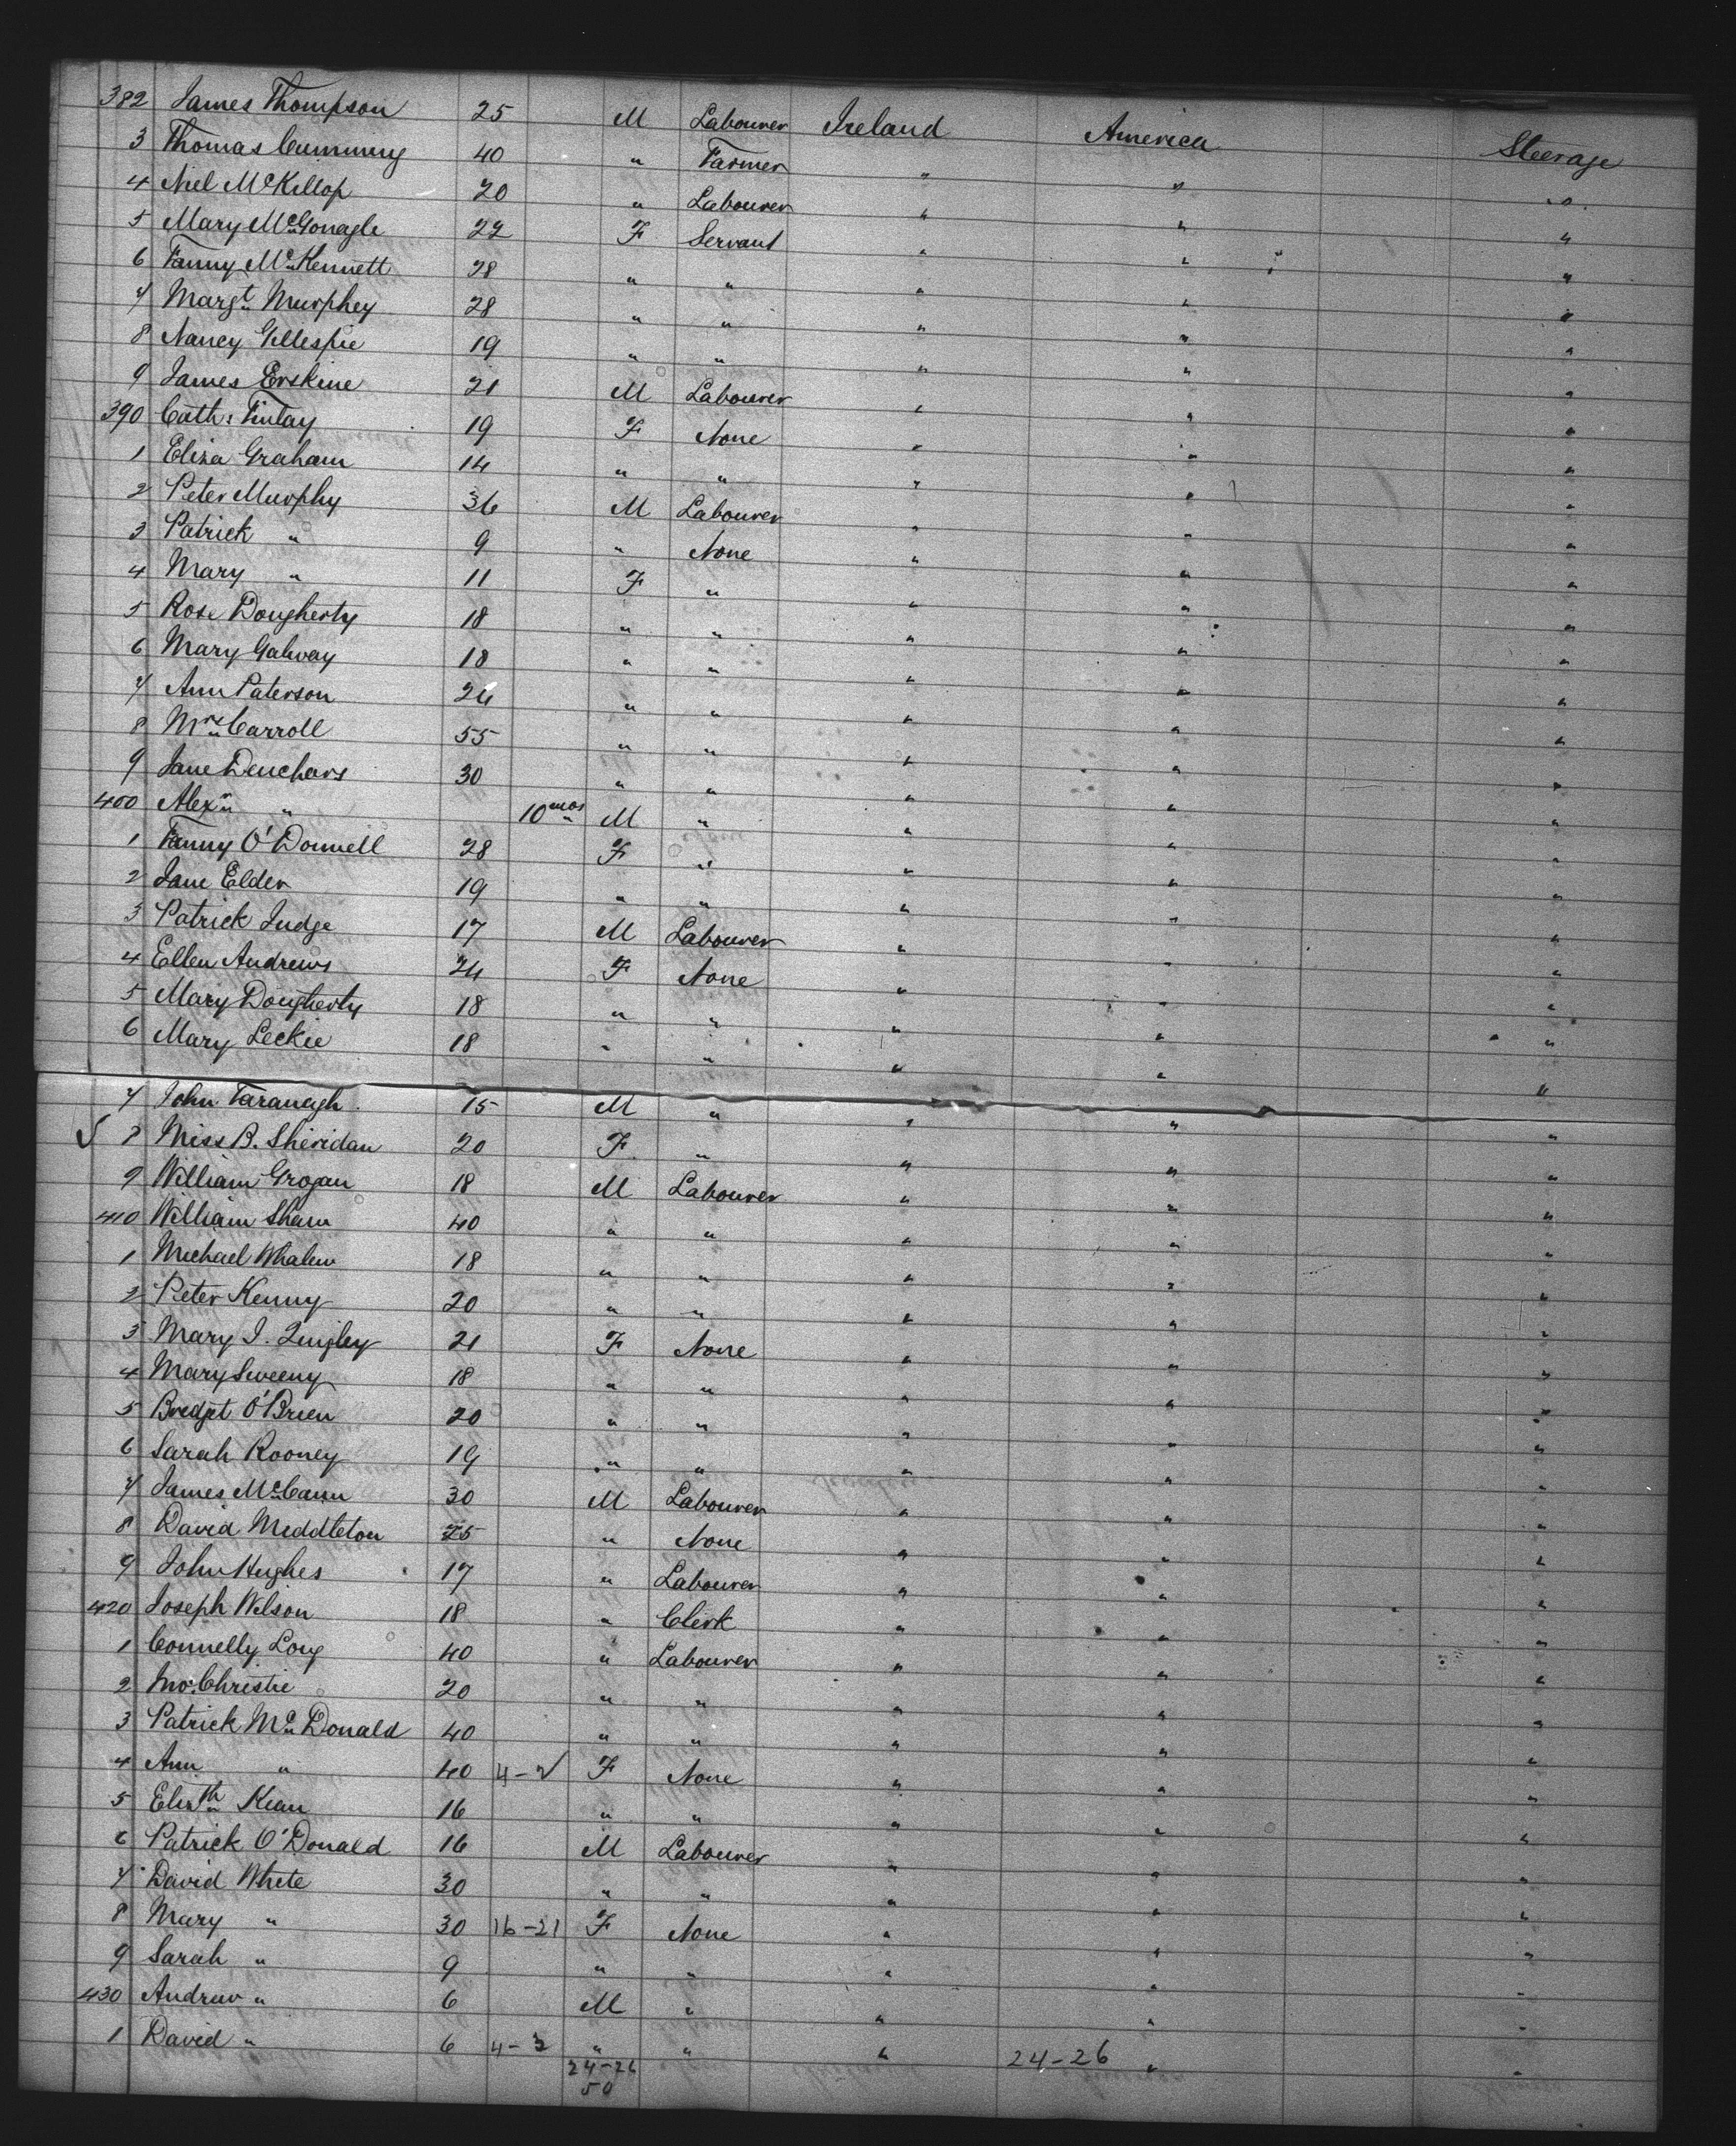 382 James Thompson 25 M Labourer Ireland America Steerage
3 Thomas Cumming 40 " Farmer " " "
4 Niel McKillop 20 " Labourer " " "
5 Mary McGonagle 22 F Servant " " "
6 Fanny McKennett 28 " " " " "
7 Margt Murphey 28 " " " " "
8 Nancy Gillespie 19 " " " " "
9 James Erskine 21 M Labourer " " "
390 Cath: Finlay 19 F None " " "
1 Eliza Graham 14 " " " " "
2 Peter Murphy 36 M Labourer " " "
3 Patrick " 9 " None " " "
4 Mary " 11 F " " " "
5 Rose Dougherty 18 " " " " "
6 Mary Galway 18 " " " " "
7 Ann Paterson 24 " " " " "
8 Mrs Carroll 55 " " " " "
9 Jane Deuchars 30 " " " " "
400 Alexr " 10 mos M " " " "
1 Fanny O'Donnell 28 F " " " "
2 Jane Elder 19 " " " " "
3 Patrick Judge 17 M Labourer " " "
4 Ellen Andrews 24 F None " " "
5 Mary Dougherty 18 " " " " "
6 Mary Leckie 18 " " " " "
7 John 15 M " " " "
8 Miss B. Sheridan 20 F " " " "
9 William Grogan 18 M Labourer " " "
410 William Shaw 40 " " " " "
1 Michael Whalen 18 " " " " "
2 Peter Kenny 20 " " " " "
3 Mary J. Quigley 21 F None " " "
4 Mary Sweeny 18 " " " " "
5 Bredget O'Brien 20 " " " " "
6 Sarah Rooney 19 " " " " "
7 James McCann 30 M Labourer " " "
8 David Middleton " None " " "
9 John Hughes 17 " Labourer " " "
420 Joseph Wilson 18 " Clerk " " "
1 Connelly Long 40 " Labourer " " "
2 Jno. Christie 20 " " " " "
3 Patrick McDonald 40 " " " " "
4 Ann " 40 4-2 F None " " "
5 Elizth Kean 16 " " " " "
6 Patrick O'Donald 16 M Labourer " " "
7 David White 30 " " " " "
8 Mary " 30 16-21 F None " " "
9 Sarah " 9 " " " " "
430 Andrew " 6 M " " " "
1 David " 6 4-3 " " " 24-26 " "
24-26
50